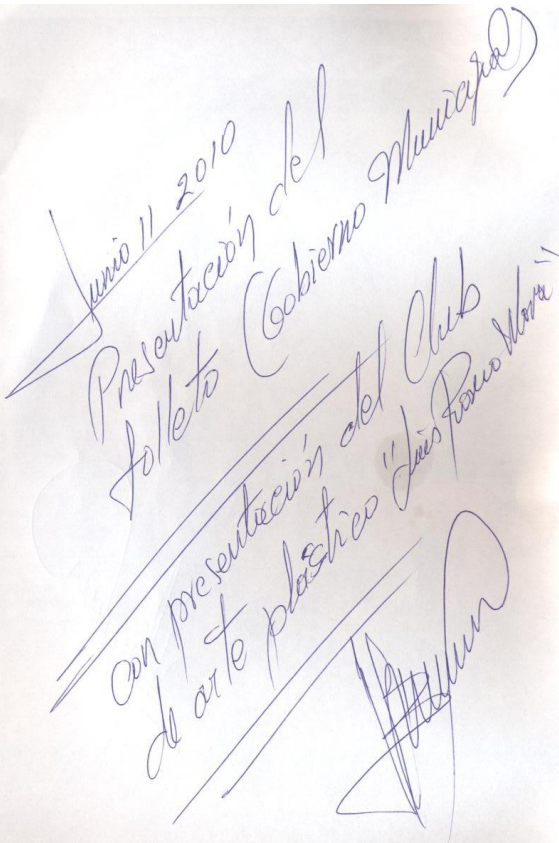 Junio 11 2010
Presentación del
folleto (Gobierno Municipal)
con presentación del Club
de arte plástico "Luis Mora"